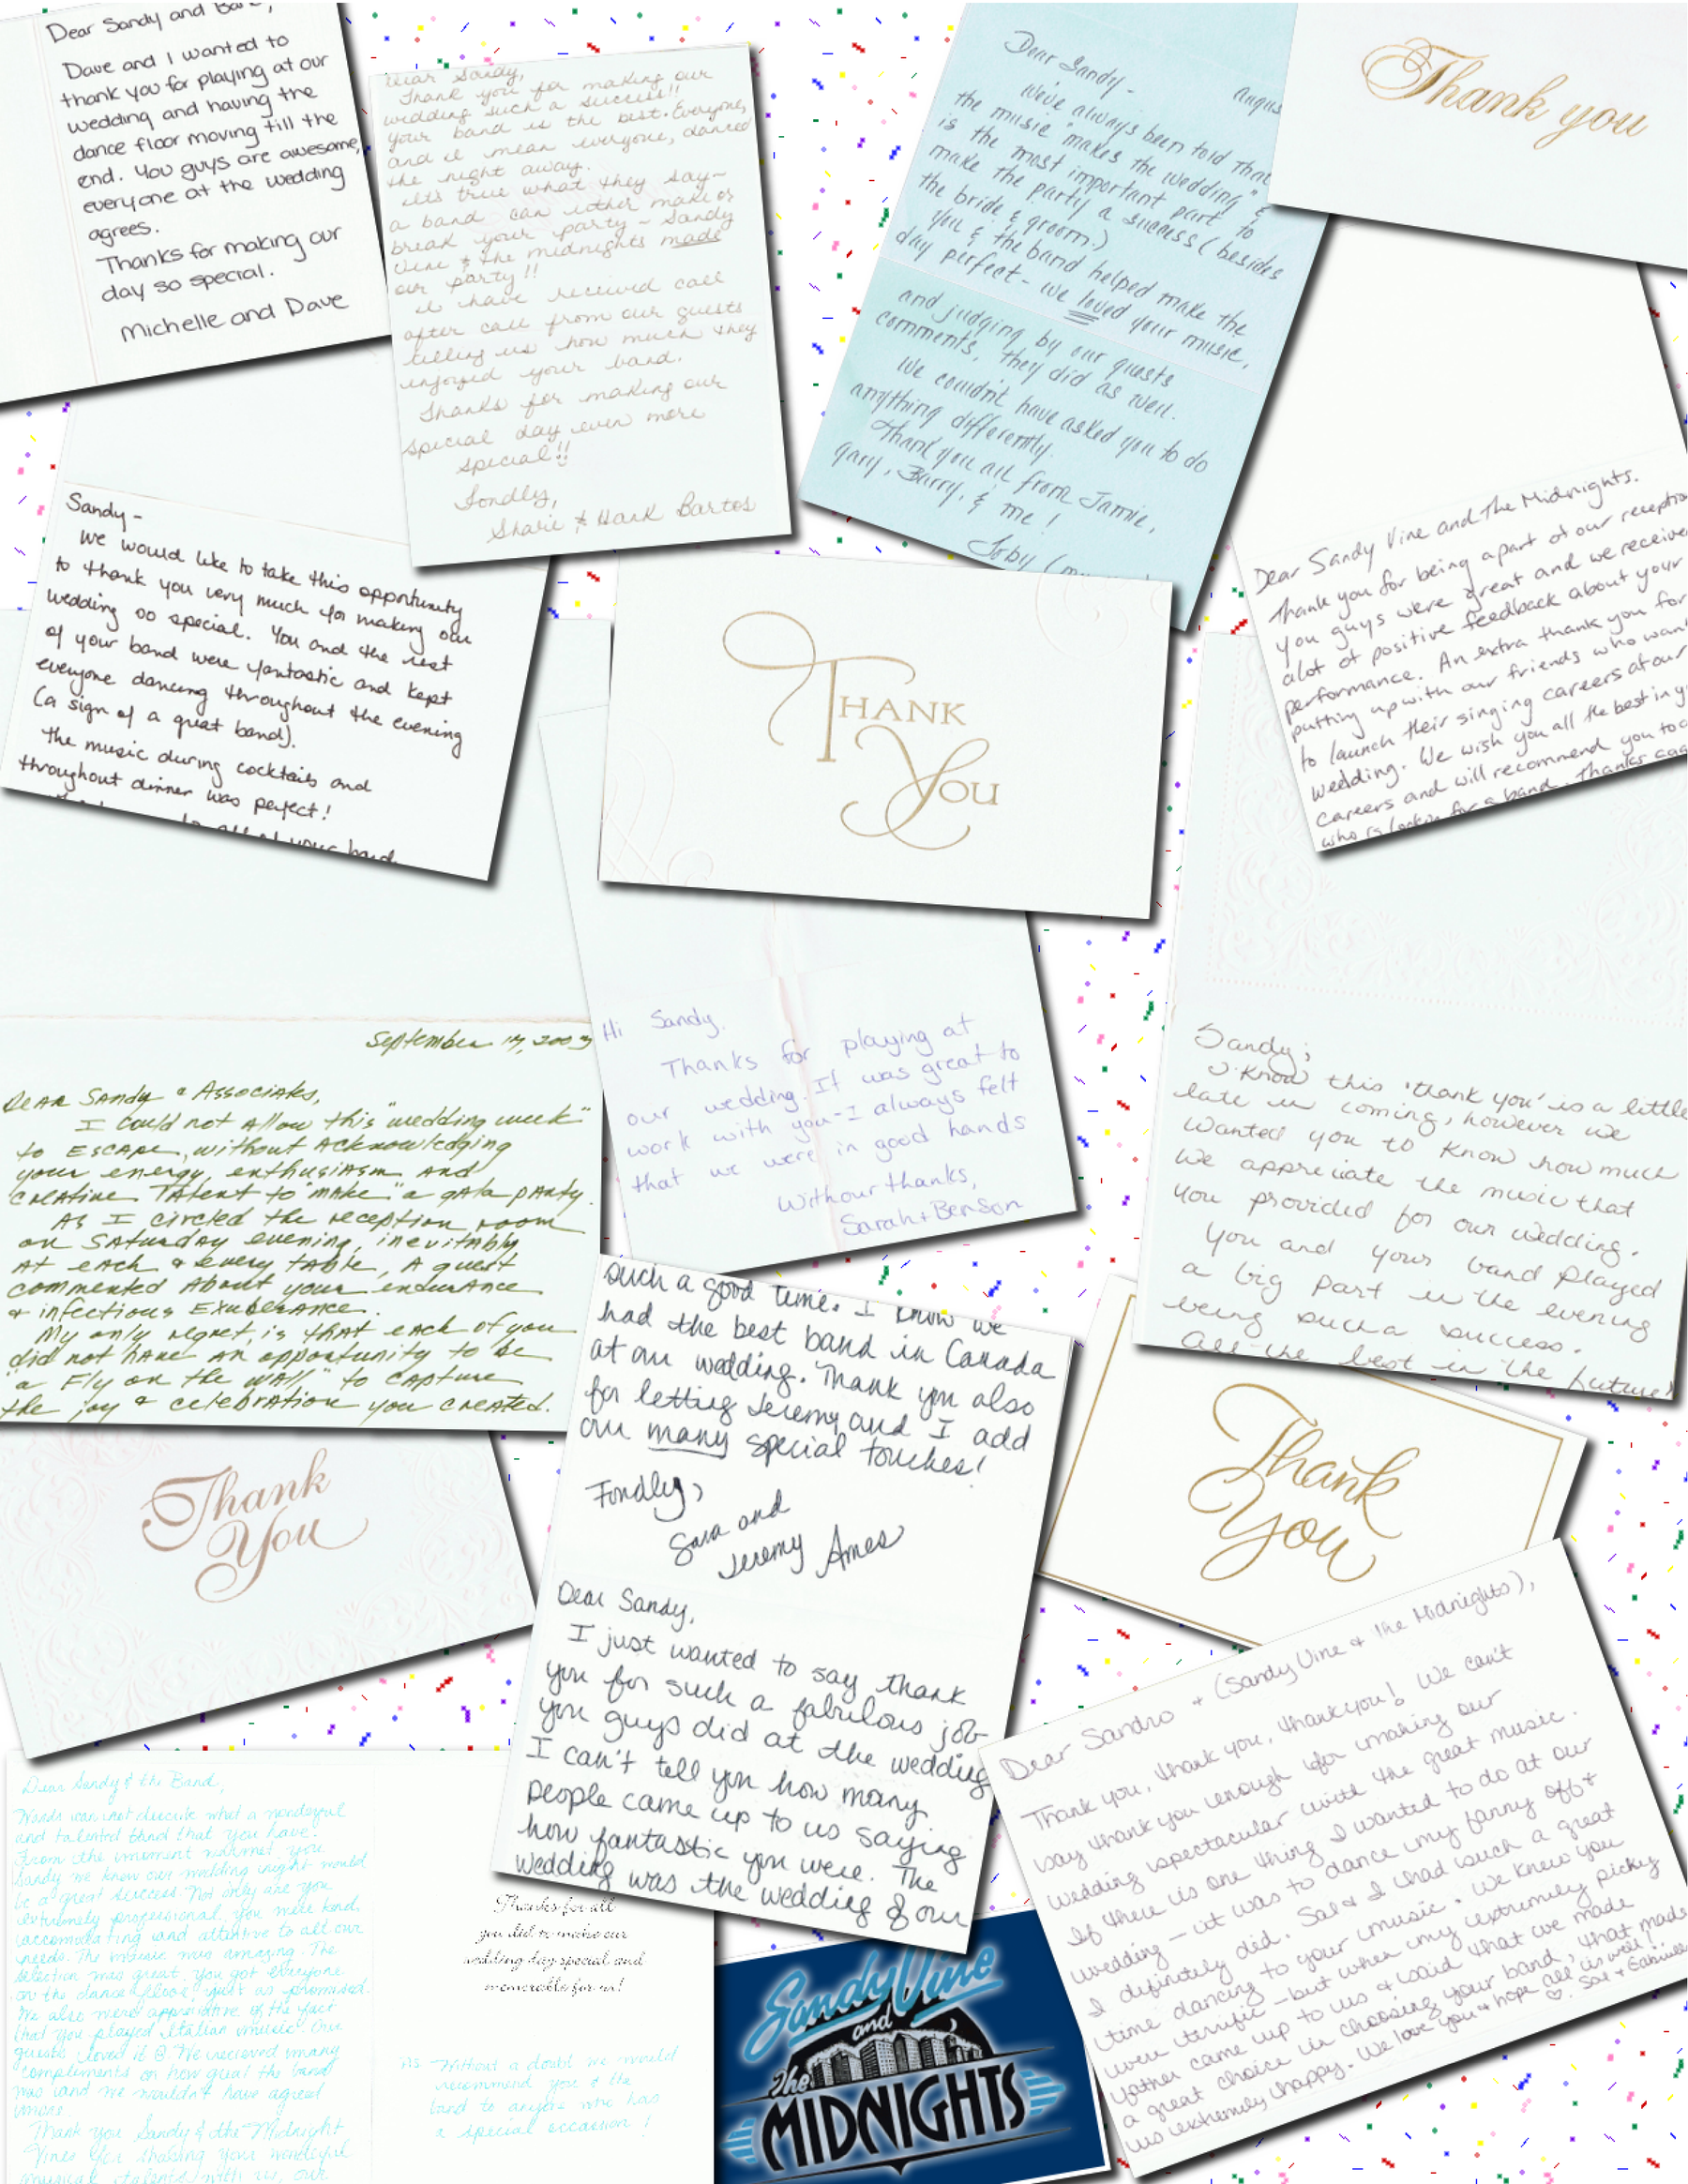 Dear Sandy and
Dave and I wanted to
thank you for playing at our
wedding and having the
dance floor moving till the
end. You guys are awesome,
everyone at the wedding
agrees.
Thanks for making our
day so special.
Michelle and Dave
Dear Sandy,
Thank you for making our
wedding such a success!!
your band is the best. Everyone,
and I mean everyone, danced
the night away.
It's true what they say-
a band can either make or
break your party - Sandy
Vine & the midnights made
our party!!
I have received call
after call from our guests
telling us how much they
enjoyed your band.
Thanks for making our
special day even more
special!!
Fondly,
Sharie & Hank Bartos
Dear Sandy-
We've always been told that
the music "makes the wedding" &
is the most important part to
make the party a success (besides
the bride & groom.)
You & the band helped make the
day perfect - we loved your music,
and judging by our guests
comments, they did as well.
We couldn't have asked you to do
anything differently.
Thank you all from Jamie,
Gary, Barry, & me!
Toby
Thank you
Sandy-
We would like to take this opportunity
to thank you very much for making our
wedding so special. You and the rest
of your band were fantastic and kept
everyone dancing throughout the evening
(a sign of a great band).
The music during cocktails and
throughout dinner was perfect!
to all of your band
THANK
YOU
Dear Sandy Vine and The Midnights.
Thank you for being a part of our reception
You guys were great and we receive
alot of positive feedback about your
performance. An extra thank you for
putting up with our friends who want
to launch their singing careers at our
wedding. We wish you all the best in y
careers and will recommend you to
who is lookin for a band. Thanks
September 17, 2003
DEAR Sandy & Associates,
I could not Allow this "wedding week"
to Escape, without Acknowledging
your energy, enthusiasm And
creative TAlent to "make" a gala party.
As I circled the reception room
on Saturday evening, inevitably
At each & every table, A guest
commented About your endurance
& infectious Exuberance.
My only regret, is that each of you
did not have An opportunity to be
"a Fly on the wall" to capture
the joy & celebration you created.
Hi Sandy.
Thanks for playing at
our wedding. It was great to
work with you - I always felt
that we were in good hands
With our thanks,
Sarah + Benson
Sandy;
I know this 'thank you' is a little
late in coming, however we
wanted you to know how much
we appreciate the music that
you provided for our wedding.
You and your band played
a big part in the evening
being such a success.
All the best in the future!
Thank
You
such a good time. I know we
had the best band in Canada
at our wedding. Thank you also
for letting Jeremy and I add
our many special touches!
Fondly,
Sara and
Jeremy Ames
Dear Sandy,
I just wanted to say thank
you for such a fabulous job
you guys did at the wedding
I can't tell you how many
people came up to us saying
how fantastic you were. The
wedding was the wedding of our
Thank
You
Dear Sandro + (Sandy Vine & the Midnights),
Thank you, thank you, thank you! We can't
way thank you enough for making our
wedding spectacular with the great music.
If there is one thing I wanted to do at our
wedding - it was to dance my fanny off &
I definitely did. Sal & I had such a great
time dancing to your music. We knew you
were terrific - but when my extremely picky
father came up to us & said that we made
a great choice in choosing your band, that made
us extremely happy. We love you & hope all is well!
Sal &
Dear Sandy & the Band,
Words can not describe what a wonderful
and talented band that you have.
From the moment we met you
Sandy we know our wedding night would
be a great success. Not only are you
extremely professional, you were kind,
accomodating and attentive to all our
needs. The music was amazing. The
selection was great. You got everyone
on the dance floor, just as promised.
We also were appreciative of the fact
that you played Italian music. Our
guests loved it ☺ We received many
compliments on how great the band
was and we wouldn't have agreed
more.
Thank you Sandy & the Midnight
Vines for sharing your wonderful
musical talents with us, our
Thanks for all
you did to make our
wedding day special and
memorable for us!
Without a doubt we would
recommend you & the
band to anyone who has
a special occasion!
Sandy Vine
and
The
MIDNIGHTS